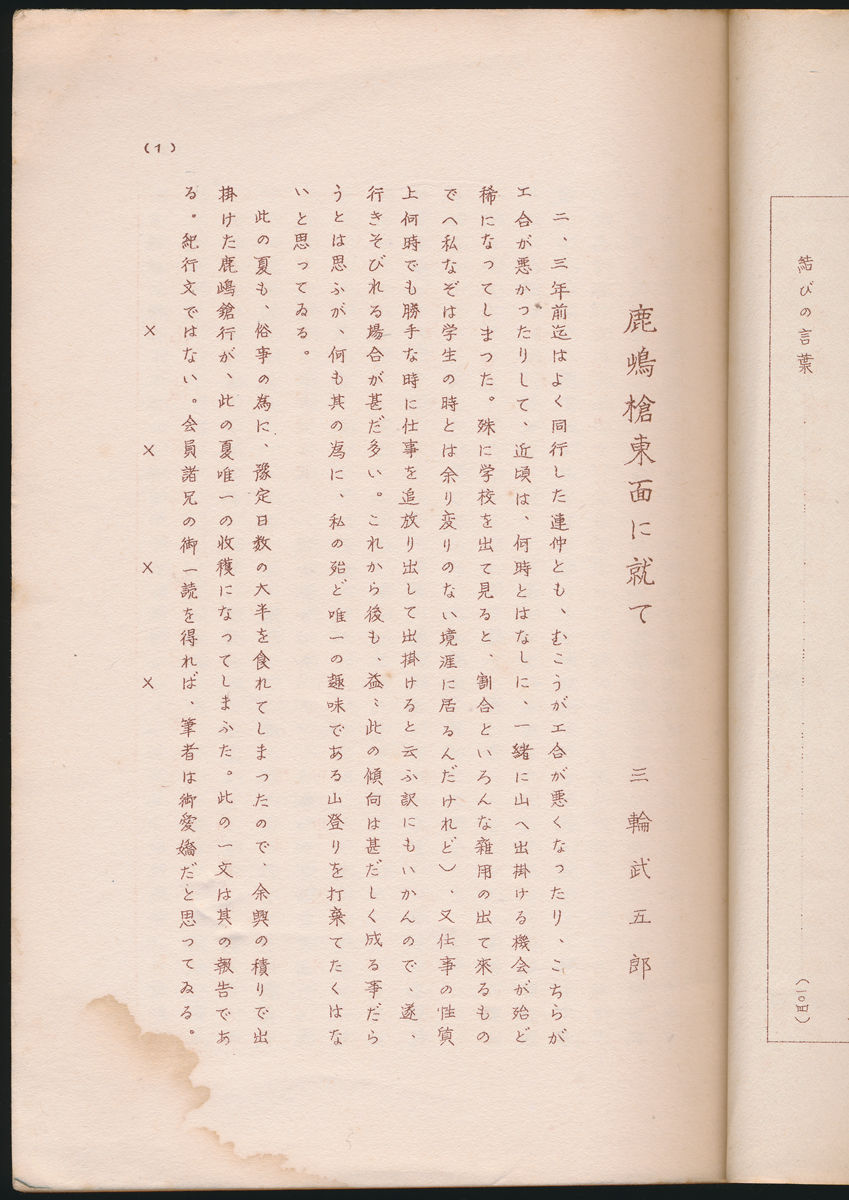 結びの言葉
(一〇四)
鹿嶋槍東面に就て
三輪武五郎
二、三年前迄はよく同行した連仲とも、むこうが工合が悪くなったり、こちらが
工合が悪かつたりして、近頃は、何時とはなしに、一緒に山へ出掛ける機会が殆ど
稀になってしまつた。殊に学校を出て見ると、割合といろんな雑用の出て来るもの
で(私なぞは学生の時とは余り変りのない境涯に居るんだけれど)、又仕事の性質
上何時でも勝手な時に仕事を追放り出して出掛けると云ふ訳にもいかんので、遂、
行きそびれる場合が甚だ多い。これから後も、益〻此の傾向は甚だしく成る事だら
うとは思ふが、何も其の為に、私の殆ど唯一の趣味である山登りを打棄てたくはな
いと思ってゐる。
此の夏も、俗事の為に、豫定日数の大半を食れてしまつたので、余興の積りで出
掛けた鹿嶋鎗行が、此の夏唯一の收穫になってしまふた。此の一文は其の報告であ
る。紀行文ではない。会員諸兄の御一読を得れば、筆者は御愛嬌だと思ってゐる。
× × × ×
(1)